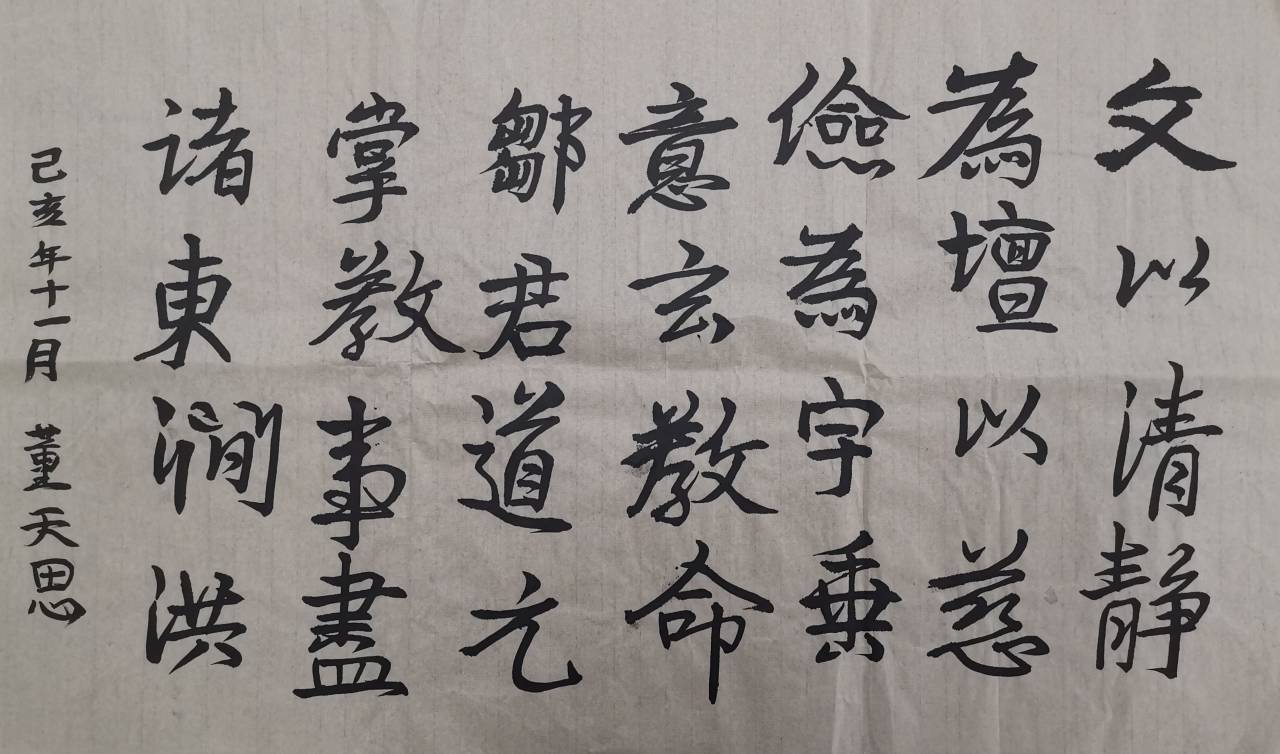 文以清静
為壇以慈
儉為字垂
意玄教命
鄒君道元
掌教事盡
诸東澗洪
己亥年十一月 董天思